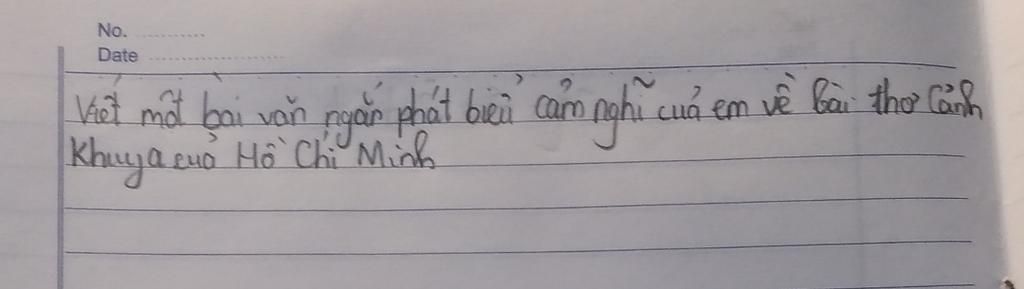 No. ............
Date ........................
Viết một bài văn ngắn phát biểu cảm nghĩ của em về bài thơ Cảnh
Khuya của Hồ Chí Minh